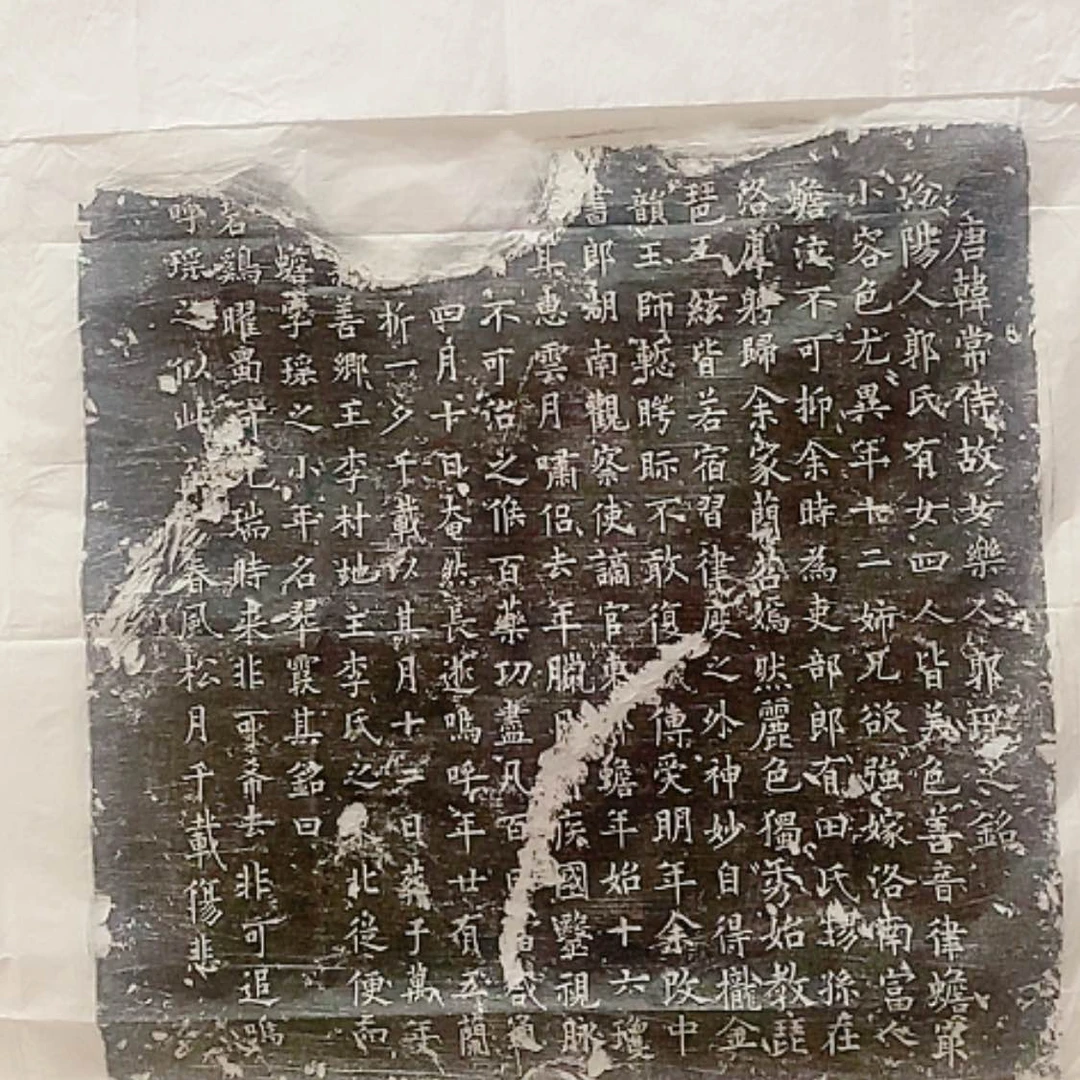 唐韓常侍故女樂人郭瑤之銘
陽人郭氏有女四人皆美色善音律蟾㝡
小容色尤異年十二姉兄欲強嫁洛南富人
蟾泣不可抑余時為吏部郎有田氏楊孫在
洛厚聘歸余家蘭若嫣然麗色獨秀始教琵
琶王絃皆若宿習律度之外神妙自得攏金
韻王師慙聘眎不敢復傳受明年余改中
書郎湖南觀察使謫官東蟾年始十六瓊
其惠雲月嘯侣去年臘疾國毉視脉
不可治之俟百藥功盡凡百
四月十日奄然長逝嗚呼年廿有五蘭
折一夕千載以其月十二日葬于萬年
善鄉王李村地主李氏之北從便而
蟾李瑤之小年名翠霞其銘曰
若鷄曜蜀瑞時来非可斋去非可追嗚
呼瑤之似此春風松月千載傷悲